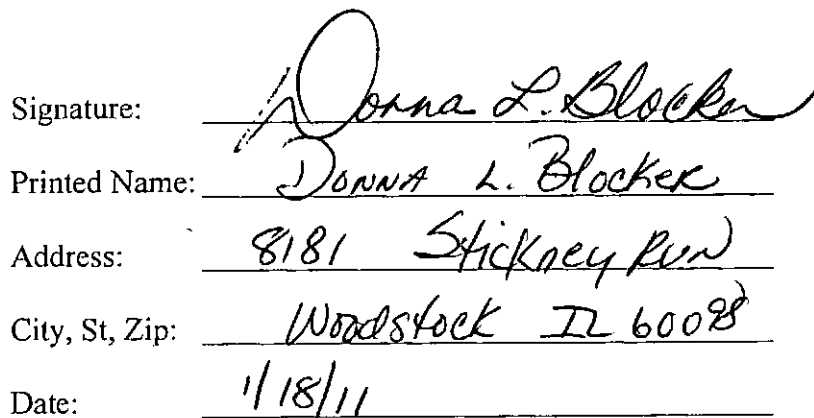 Signature: Donna L. Blocker
Printed Name: Donna L. Blocker
Address: 8181 Stickney Run
City, St, Zip: Woodstock IL 60098
Date: 1/18/11